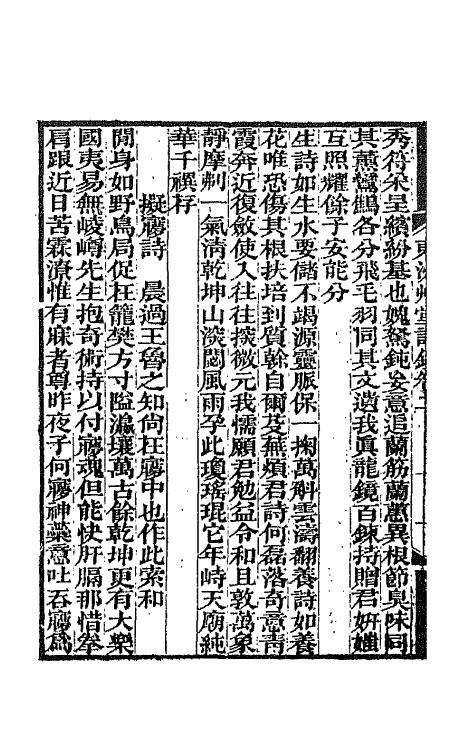 秀符采呈繽紛基也媿駑鈍妄意追蘭筋蘭蕙異根節臭味同
其薰鸞鷦各分飛毛羽同其文遺我眞龍鏡百鍊持贈君妍媸
互照耀餘子安能分
生詩如生水要儲不竭源靈脈保一掬萬斛雲濤翻養詩如養
花唯恐傷其根扶培到質幹自爾芟蕪煩君詩何磊落奇意靑
霞奔近復斂使入往往探微元我懦願君勉益令和且敦萬象
靜摩刜一氣淸乾坤山深閟風雨孕此瓊瑤琨它年峙天廟純
華千禩存
擬寱詩 晨過王魯之知尙在寱中也作此索和
閒身如野鳥局促在籠樊方寸隘瀛壤萬古餘乾坤更有大樂
國夷易無崚嶒先生抱奇術持以付寱魂但能快肝膈那惜拳
肩跟近日苦霖潦惟有寐者尊昨夜子何寱神藥意吐吞寱爲